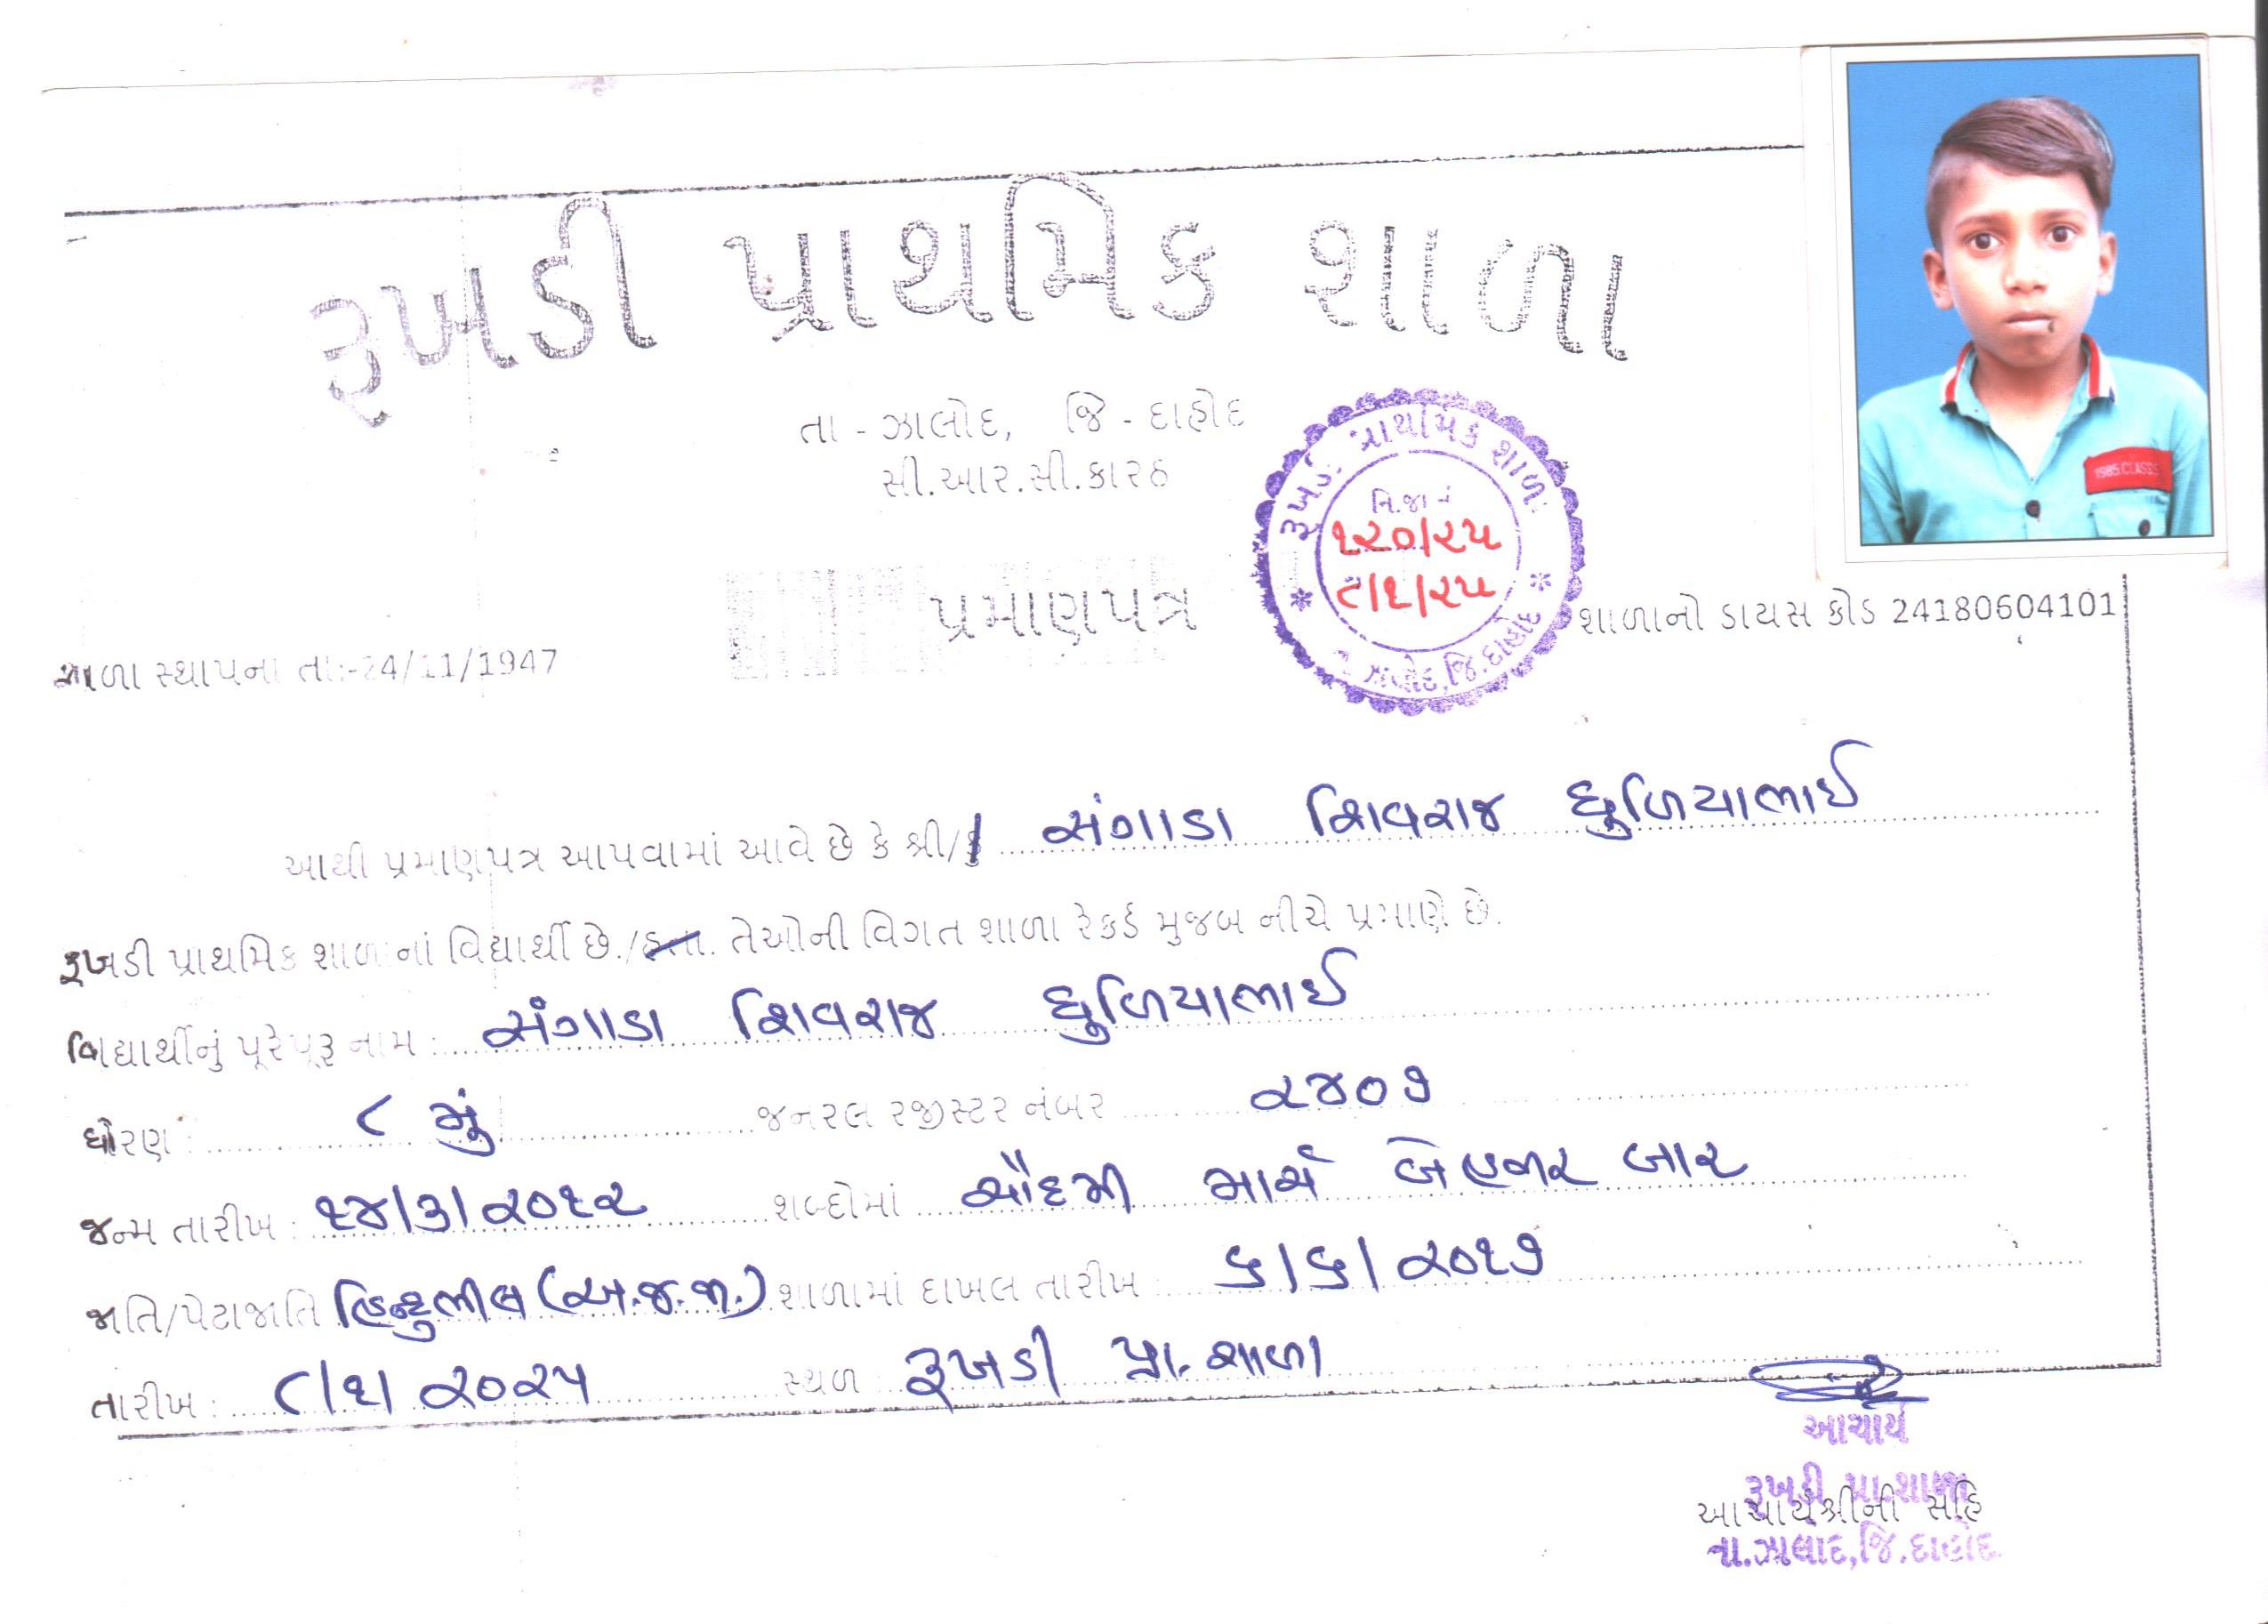 રૂખડી પ્રાથમિક શાળા
તા - ઝાલોદ, જિ - દાહોદ
સી.આર.સી.કારઠ
રૂખડી પ્રાથમિક શાળા
નિ.જા નં
૧૨૦/૨૫
૮/૧/૨૫
ઝાલોદ,જિ.દાહોદ
1985.CLASS
પ્રમાણપત્ર
શાળાનો ડાયસ કોડ 24180604101
શાળા સ્થાપના તા:-24/11/1947
આથી પ્રમાણપત્ર આપવામાં આવે છે કે શ્રી/કુ સંગાડા શિવરાજ ધુળિયાભાઈ
રૂખડી પ્રાથમિક શાળાનાં વિદ્યાર્થી છે./હતા. તેઓની વિગત શાળા રેકર્ડ મુજબ નીચે પ્રમાણે છે.
વિદ્યાર્થીનું પૂરેપૂરૂ નામ : સંગાડા શિવરાજ ધુળિયાભાઈ
ધોરણ : ૮ મું જનરલ રજીસ્ટર નંબર ૨૪૦૭
જન્મ તારીખ : ૧૪/૩/૨૦૧૨ શબ્દોમાં ચૌદમી માર્ચ બેહજાર બાર
જાતિ/પેટાજાતિ હિન્દુભીલ (અ.જ.જા.) શાળામાં દાખલ તારીખ : ૬/૬/૨૦૧૭
તારીખ : ૮/૧/૨૦૨૫ સ્થળ : રૂખડી પ્રા.શાળા
આચાર્ય
રૂખડી પ્રા.શાળા
આચાર્યશ્રીની સહિ
તા.ઝાલોદ,જિ.દાહોદ